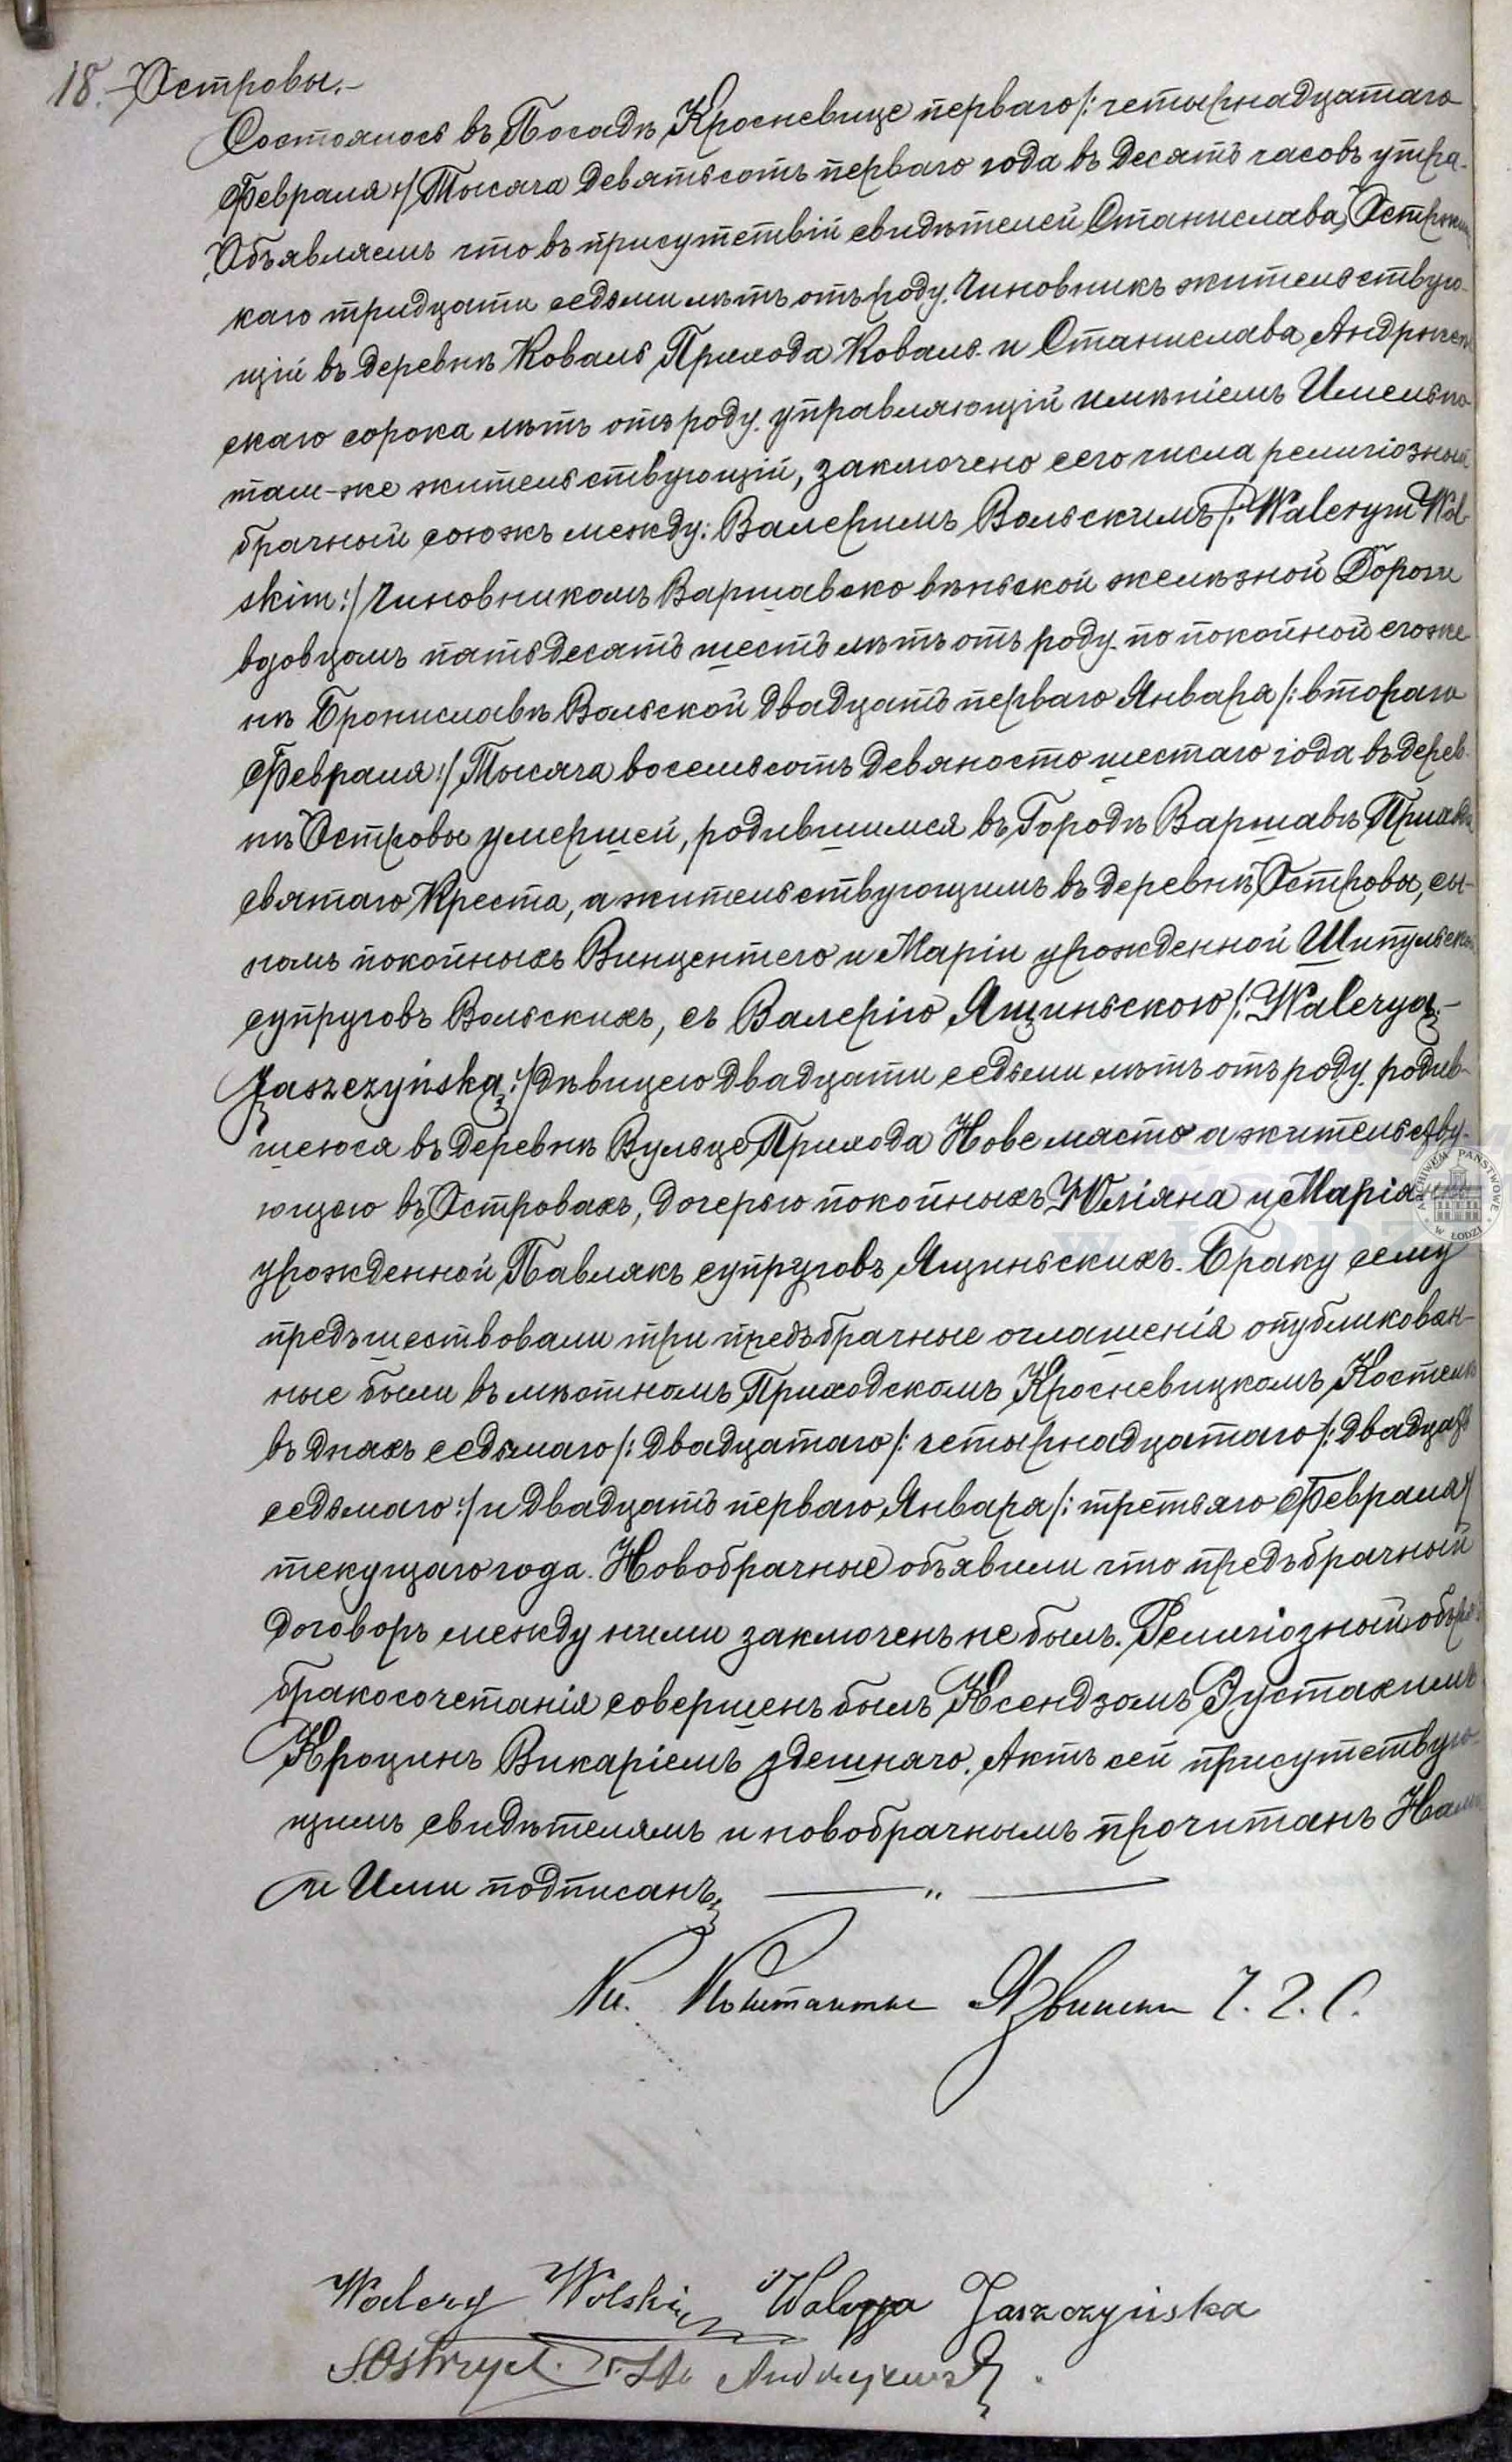 18. Островы.
Состоялось въ Посадѣ Кросневице перваго /: четырнадцатаго
Февраля :/ Тысяча девятьсотъ перваго года въ десять часовъ утра.
Объявляемъ что въ присутствіи свидѣтелей Станислава
каго тридцати седьми лѣтъ отъ роду. Чиновникъ жительствую-
щій въ деревнѣ Коваль Прихода Коваль и Станислава
скаго сорока лѣтъ отъ роду. управляющій имѣніемъ
там-же жительствующій, заключено сего числа религіозный
брачный союжъ между: Валерымъ Вольскимъ /: Walerym Wol-
skim :/ Чиновникомъ Варшавско вѣньской желѣзной Дороги
вдовцомъ пятьдесятъ шесть лѣтъ отъ роду. по покойной его же-
нѣ Брониславѣ Вольской двадцать перваго Января /: втораго
Февраля :/ Тысяча восемьсотъ девяносто шестаго года въ дерев-
нѣ Островы умершей, родившимся въ Городѣ Варшавѣ Прихода
святаго Креста, а жительствующимъ въ деревнѣ Островы, сы-
номъ покойныхъ Винцентего и Маріи урожденной Шипульской
супруговъ Вольскихъ, съ Валерію Ящиньскою /: Waleryą
Jaszczyńską :/ дѣвицею двадцати седьми лѣтъ отъ роду. родив-
шеюся въ деревнѣ Вульце Прихода Нове място а жительству-
ющею въ Островахъ, дочерью покойныхъ Юліяна и Маріянны
урожденной Павлякъ супруговъ Ящиньскихъ. Браку сему
предъшествовали три предъбрачные оглашенія опубликован-
ные были въ мѣстномъ Приходскомъ Кросневицкомъ Костелѣ
въ днахъ седьмаго /: двадцатаго /: четырнадцатаго /: двадцать
седьмаго :/ и двадцать перваго Января /: третьяго Февраля :/
текущаго года. Новобрачные объявили что предъбрачный
договоръ между ними заключенъ не былъ. Религіозный обрядъ
бракосочетанія совершенъ былъ Ксендзомъ Эустахимъ
Кроцинъ Викаріемъ здешняго. Актъ сей присутствую-
щимъ свидѣтелямъ и новобрачнымъ прочитанъ Нами
и Ими подписанъ
Кс. Константы Язвински Ч. Г. С.
Walery Wolski Walerya Jaszczyńska
S. Ostrzyc. St. Andrzejewski
ARCHIWUM PAŃSTWOWE W ŁODZI